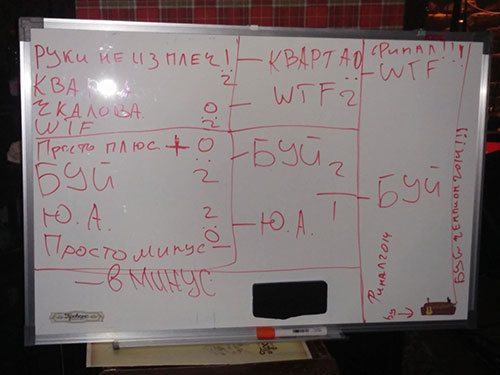 РУКИ НЕ ИЗ ПЛЕЧ 1
:
2
КВАРТАО
ЧКАЛОВА 0
:
WTF 2
Просто плюс + 0
:
БУЙ 2
Ю.А. 2
:
Просто минус – 0
– В МИНУС
КВАРТАО 0
:
WTF 2
БУЙ 2
Ю.А. 1
ФИНАЛ!!!
WTF
БУЙ
ФИНАЛ 2014
БУЙ ЧЕМПИОН 2014!!!